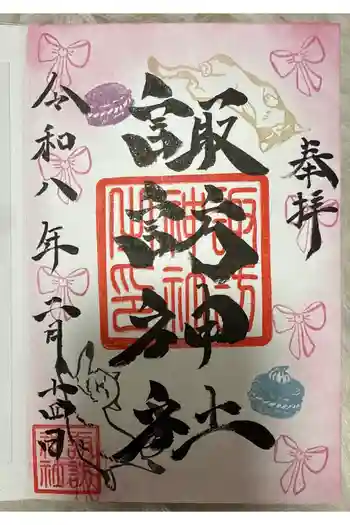 奉拝
諏訪神社
諏訪神社御印
令和八年二月十四日
諏訪神社